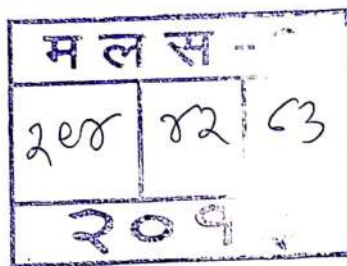 मलस-
२९४ ४२ ८३
२०१